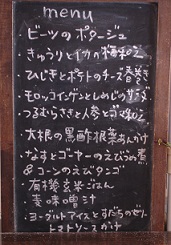 menu
・ビーツのポタージュ
・きゅうりとイカの梅和え
・ひじきとポテトのチーズ春巻き
・モロッコインゲンとしめじのサラダ
・つるむらさきと人参とゴマ和え
・大根の黒酢根菜あんかけ
・なすとゴーヤーのえびつめ煮
＆コーンのえびダンゴ
・有機玄米ごはん
・麦味噌汁
・ヨーグルトアイスとすだちのゼリー
トマトソースがけ